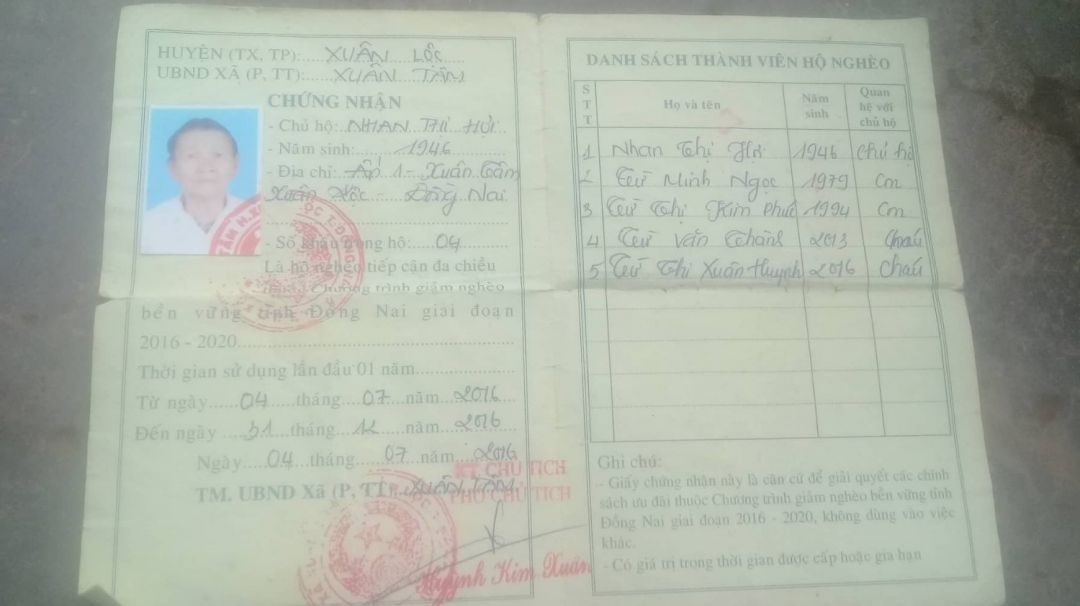 HUYỆN (TX, TP):.....XUÂN LỘC
UBND XÃ (P, TT):....XUÂN TÂM
CHỨNG NHẬN
- Chủ hộ: NHAN THỊ HỢI
- Năm sinh:........1946
- Địa chỉ: Ấp 1 - Xuân Tâm
Xuân Lộc - Đồng Nai
- Số khẩu trong hộ:...04
Là hộ nghèo tiếp cận đa chiều
Chương trình giảm nghèo
bền vững tỉnh Đồng Nai giai đoạn
2016 - 2020
Thời gian sử dụng lần đầu 01 năm
Từ ngày.....04.....tháng....07....năm..2016
Đến ngày.....31...tháng...12...năm 2016
Ngày....04....tháng....07..năm..2016
KT. CHỦ TỊCH
TM. UBND Xã (P, TT)..XUÂN TÂM
PHÓ CHỦ TỊCH
Huỳnh Kim Xuân
DANH SÁCH THÀNH VIÊN HỘ NGHÈO
STT Họ và tên Năm sinh Quan hệ với chủ hộ
1 Nhan Thị Hợi 1946 chủ hộ
2 Từ Minh Ngọc 1979 Con
3 Từ Thị Kim 1994 Con
4 Từ Văn 2013 Cháu
5 Từ Thị Xuân Huynh 2016 Cháu
Ghi chú:
- Giấy chứng nhận này là căn cứ để giải quyết các chính
sách ưu đãi thuộc Chương trình giảm nghèo bền vững tỉnh
Đồng Nai giai đoạn 2016 - 2020, không dùng vào việc
khác.
- Có giá trị trong thời gian được cấp hoặc gia hạn